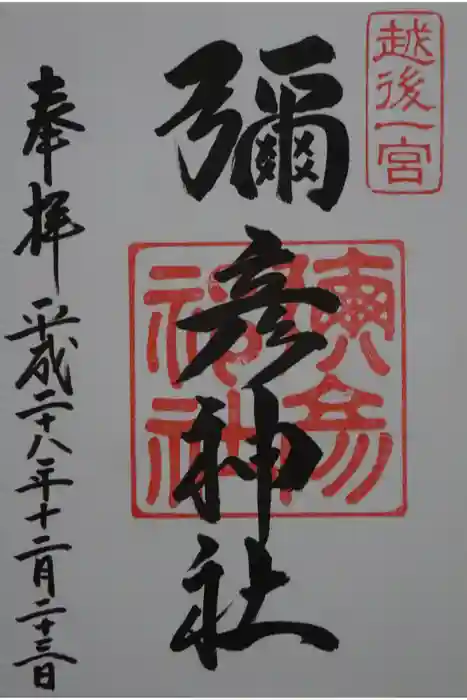 越後一宮
彌彦神社
彌彦神社
奉拝 平成二十八年十二月二十三日